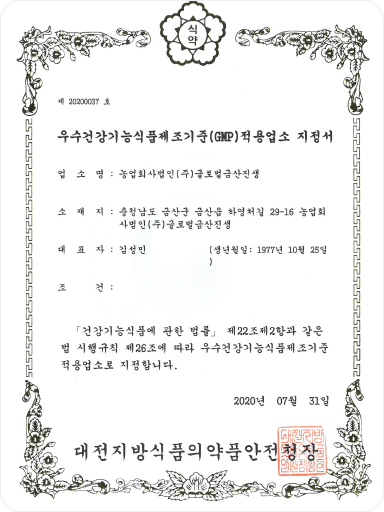 식
약
제 20200037 호
우수건강기능식품제조기준(GMP)적용업소 지정서
업 소 명 : 농업회사법인(주)글로벌금산진생
소 재 지 : 충청남도 금산군 금산읍 하영처길 29-16 농업회
사법인(주)글로벌금산진생
대 표 자 : 김성민 (생년월일: 1977년 10월 25일
)
조 건 :
「건강기능식품에 관한 법률」 제22조제2항과 같은
법 시행규칙 제26조에 따라 우수건강기능식품제조기준
적용업소로 지정합니다.
2020년 07월 31일
대전지방식품의약품안전청장